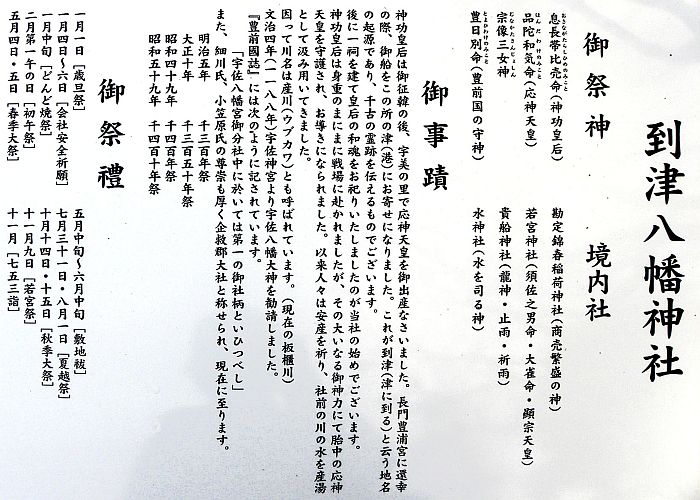 到津八幡神社
御祭神
息長帯比売命(神功皇后)
品陀和気命(応神天皇)
宗像三女神
豊日別命(豊前国の守神)
境内社
勘定錦春稲荷神社(商売繁盛の神)
若宮神社(須佐之男命・大雀命・顕宗天皇)
貴船神社(龍神・止雨・祈雨)
水神社(水を司る神)
御事蹟
神功皇后は御征韓の後、宇美の里で応神天皇を御出産なさいました。長門豊浦宮に還幸
の際、御船をこの所の津(港)にお寄せになりました。これが到津(津に到る)と云う地名
の起源であり、千古の霊跡を伝えるものでございます。
後に一祠を建て皇后の和魂をお祀りいたしましたのが当社の始めでございます。
神功皇后は身重のまにまに戦場に赴かれましたが、その大いなる御神力にて胎中の応神
天皇を守護され、お導きになられました。以来人々は安産を祈り、社前の川の水を産湯
として汲み用いてきました。
因って川名は産川(ウブカワ)とも呼ばれています。(現在の板櫃川)
文治四年(一一八八年)宇佐神宮より宇佐八幡大神を勧請しました。
『豊前國誌』には次のように記されています。
「宇佐八幡宮御分社中に於いては第一の御社柄といひつべし」
また、細川氏、小笠原氏の尊崇も厚く企救郡大社と称せられ、現在に至ります。
明治五年 千三百年祭
大正十年 千三百五十年祭
昭和四十九年 千四百年祭
昭和五十九年 千四百十年祭
御祭禮
一月一日[歳旦祭]
一月四日~六日[会社安全祈願]
一月中旬[どんど焼祭]
二月第一午の日[初午祭]
五月四日・五日[春季大祭]
五月中旬~六月中旬[敷地祓]
七月三十一日・八月一日[夏越祭]
十月十四日・十五日[秋季大祭]
十一月九日[若宮祭]
十一月[七五三詣]